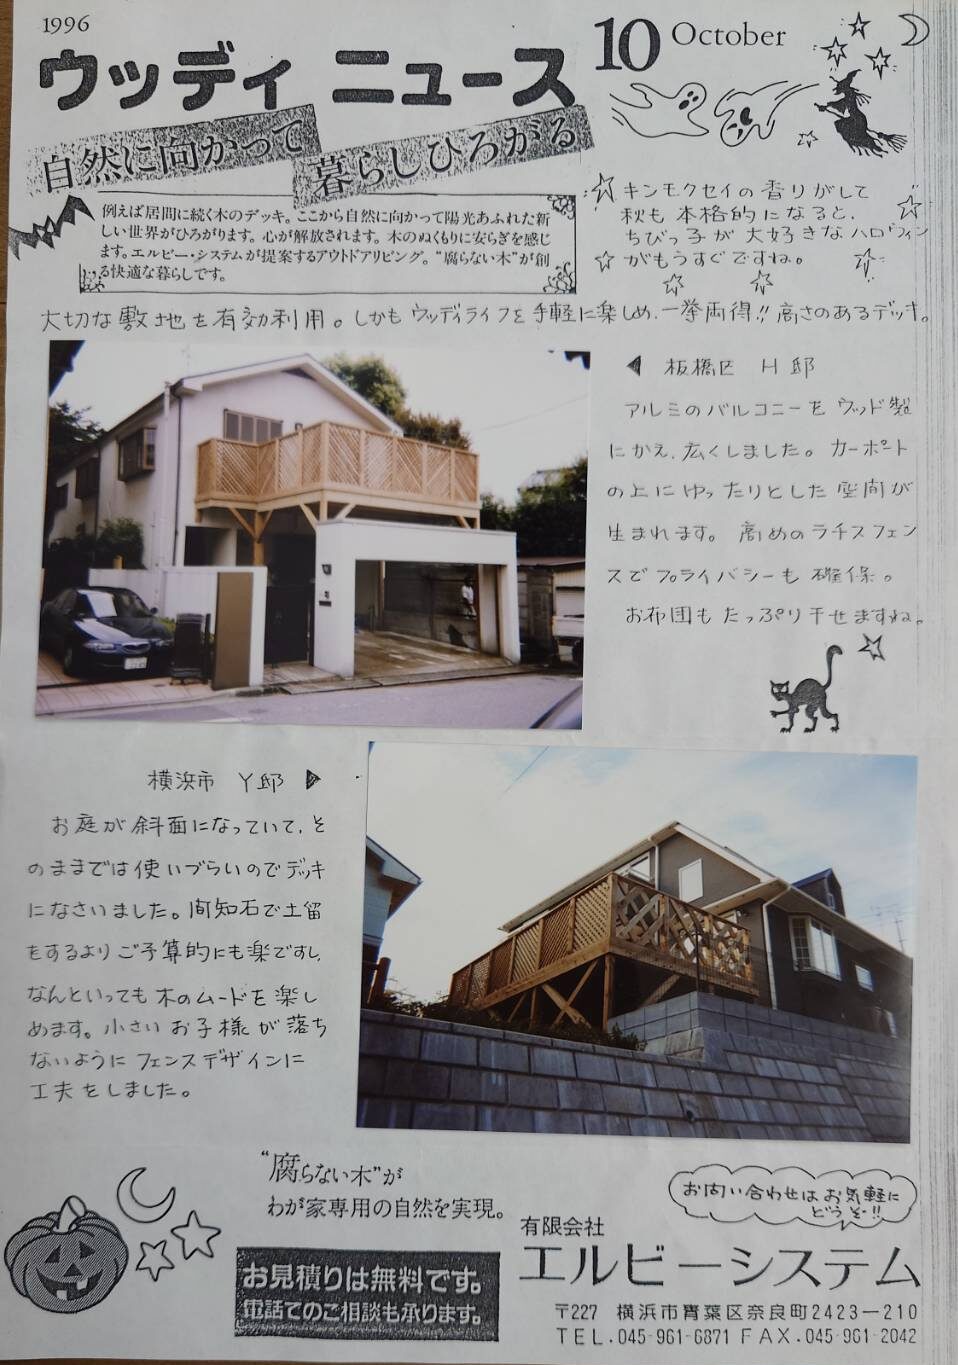 1996
ウッディ ニュース
10 October
自然に向かって
暮らしひろがる
例えば居間に続く木のデッキ。ここから自然に向かって陽光あふれた新
しい世界がひろがります。心が解放されます。木のぬくもりに安らぎを感じ
ます。エルビー・システムが提案するアウトドアリビング。“腐らない木”が創
る快適な暮らしです。
キンモクセイの香りがして
秋も本格的になると、
ちびっ子が大好きなハロウィン
がもうすぐですね。
大切な敷地を有効利用。しかもウッディライフを手軽に楽しめ、一挙両得!! 高さのあるデッキ。
◀ 板橋区 H邸
アルミのバルコニーをウッド製
にかえ、広くしました。カーポート
の上にゆったりとした空間が
生まれます。高めのラチスフェン
スでプライバシーも確保。
お布団もたっぷり干せますね。
横浜市 Y邸 ▶
お庭が斜面になっていて、そ
のままでは使いづらいのでデッキ
になさいました。間知石で土留
をするよりご予算的にも楽ですし、
なんといっても木のムードを楽し
めます。小さいお子様が落ち
ないようにフェンスデザインに
工夫をしました。
“腐らない木”が
わが家専用の自然を実現。
お見積りは無料です。
電話でのご相談も承ります。
お問い合わせはお気軽に
どうぞ!!
有限会社
エルビーシステム
〒227 横浜市青葉区奈良町2423ー210
TEL.045-961-6871 FAX.045-961-2042